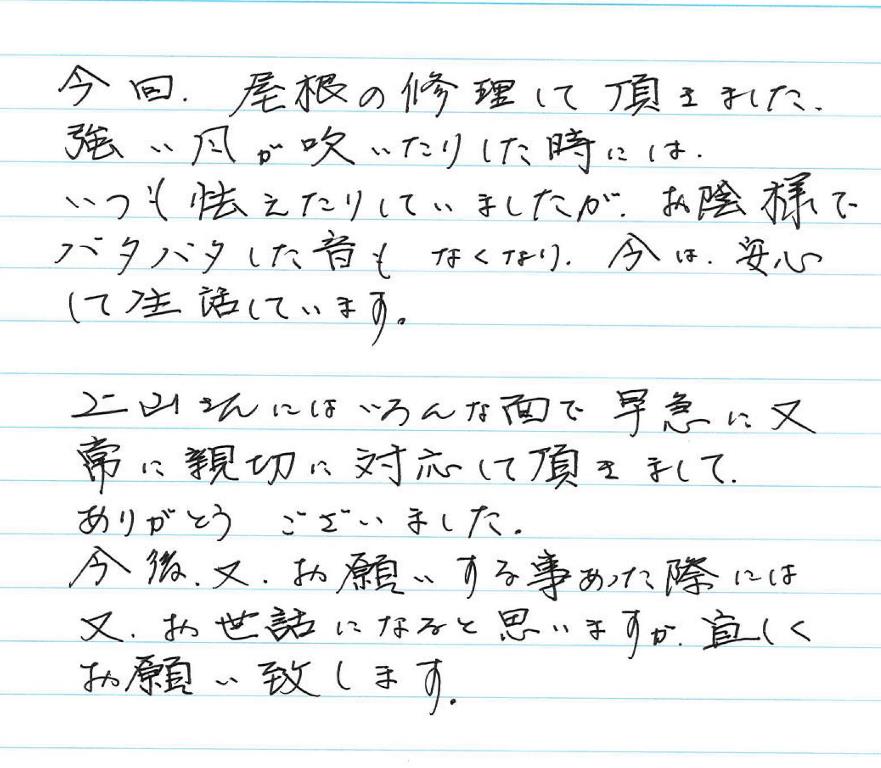 今回、屋根の修理して頂きました、
強い風が吹いたりした時には、
いつも怯えたりしていましたが、お陰様で
バタバタした音も なくなり、今は、安心
して生活しています。
正山さんにはいろんな面で早急に又
常に親切に対応して頂きまして、
ありがとう ございました。
今後、又、お願いする事あった際には
又、お世話になると思いますが、宜しく
お願い致します。